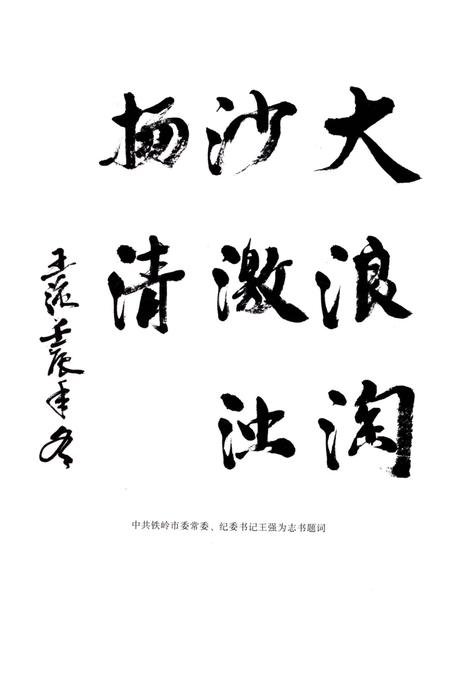 大浪淘
沙激浊
扬清
王强 壬辰年冬
中共铁岭市委常委、纪委书记王强为志书题词